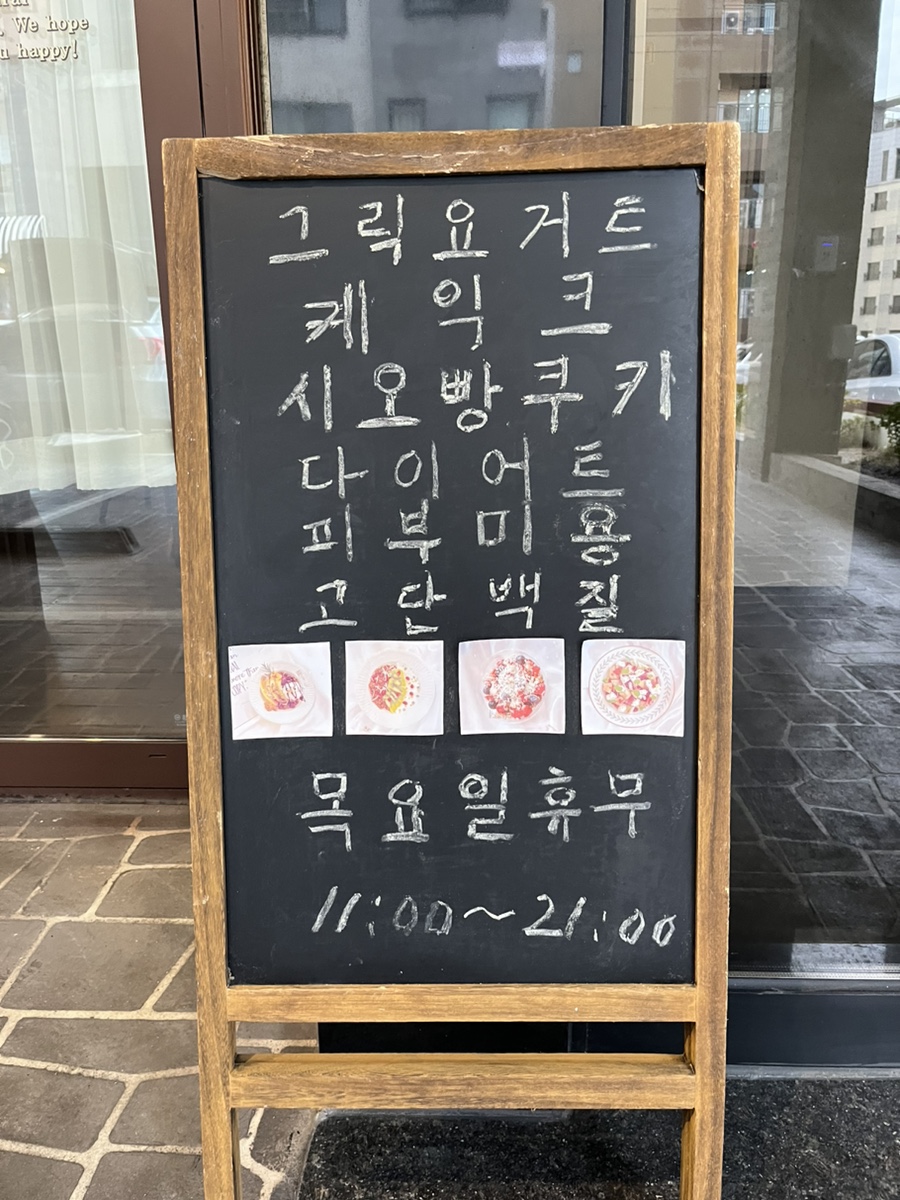 We hope
happy!
그릭요거트
케익크
시오빵쿠키
다이어트
피부미용
고단백질
목요일휴무
11:00~21:00